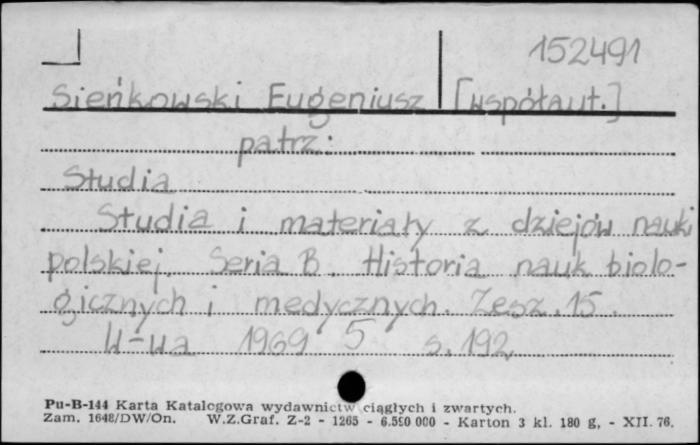 152491
Sieńkowski Eugeniusz [współaut.]
patrz:
Studia
Studia i materiały z dziejów nauki
polskiej. Seria B. Historia nauk biolo-
gicznych i medycznych. Zesz. 15.
W-wa 1969 5 s. 192
Pu-B-144 Karta Katalogowa wydawnictw ciągłych i zwartych.
Zam. 1648/DW/On. W.Z.Graf. Z-2 - 1265 - 6.550 000 - Karton 3 kl. 180 g, - XII. 76.